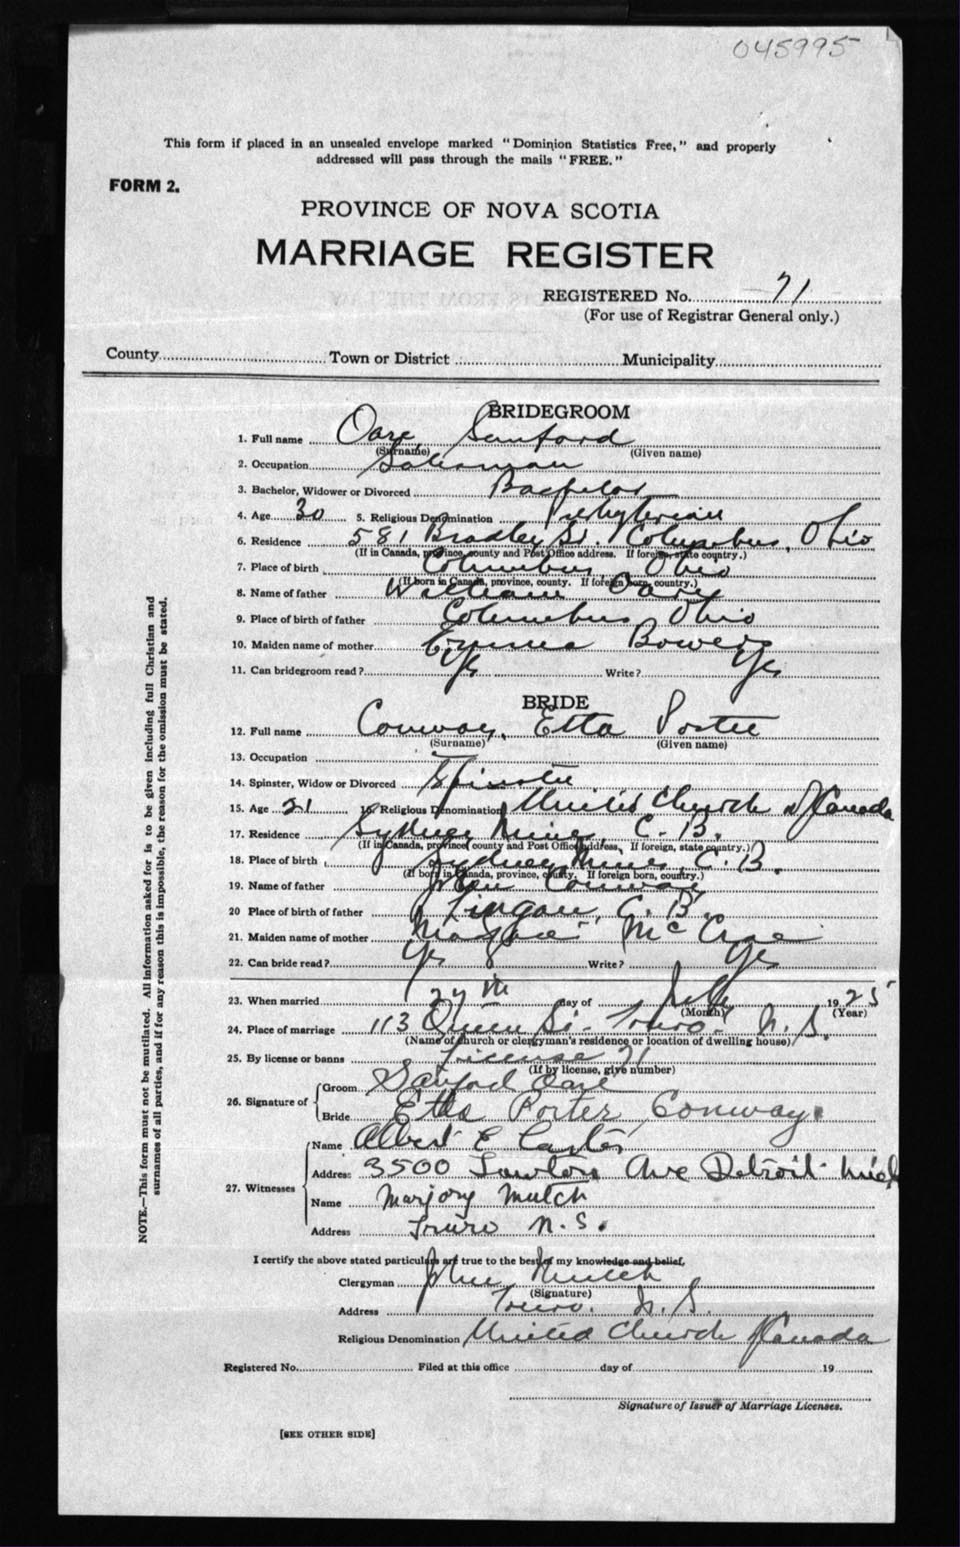 045995
This form if placed in an unsealed envelope marked "Dominion Statistics Free," and properly
addressed will pass through the mails "FREE."
FORM 2.
PROVINCE OF NOVA SCOTIA
MARRIAGE REGISTER
REGISTERED No. 71
(For use of Registrar General only.)
County Town or District Municipality
BRIDEGROOM
1. Full name Oare Sanford
(Surname) (Given name)
2. Occupation Salesman
3. Bachelor, Widower or Divorced Bachelor
4. Age 30 5. Religious Denomination Presbyterian
6. Residence 581 Bradley St. Columbus, Ohio
(If in Canada, province, county and Post Office address. If foreign, state country.)
7. Place of birth Columbus, Ohio
(If born in Canada, province, county. If foreign born, country.)
8. Name of father William Oare
9. Place of birth of father Columbus Ohio
10. Maiden name of mother Emma Bowers
11. Can bridegroom read? Yes Write? Yes
BRIDE
12. Full name Conway, Etta Porter
(Surname) (Given name)
13. Occupation
14. Spinster, Widow or Divorced Spinster
15. Age 21 16. Religious Denomination United Church of Canada
17. Residence Sydney Mines, C. B.
(If in Canada, province, county and Post Office address, If foreign, state country.)
18. Place of birth Sydney Mines, C. B.
(If born in Canada, province, county. If foreign born, country.)
19. Name of father John Conway
20 Place of birth of father Lingan, C. B.
21. Maiden name of mother McCrae
22. Can bride read? Yes Write? Yes
23. When married 27th day of Sept 1925
(Month) (Year)
24. Place of marriage 113 Queen St. Truro. N. S.
(Name of church or clergyman's residence or location of dwelling house)
25. By license or banns License 71
(If by license, give number)
26. Signature of Groom Sanford Oare
Bride Etta Porter Conway.
27. Witnesses Name Albert E Carter
Address 3500 Lawton Ave Detroit Mich
Name Marjory Mutch
Address Truro N. S.
I certify the above stated particulars are true to the best of my knowledge and belief,
Clergyman John Mutch
(Signature)
Address Truro. N. S.
Religious Denomination United Church of Canada
Registered No. Filed at this office day of 19
Signature of Issuer of Marriage Licenses.
[SEE OTHER SIDE]
NOTE.—This form must not be mutilated. All information asked for is to be given including full Christian and
surnames of all parties, and if for any reason this is impossible, the reason for the omission must be stated.